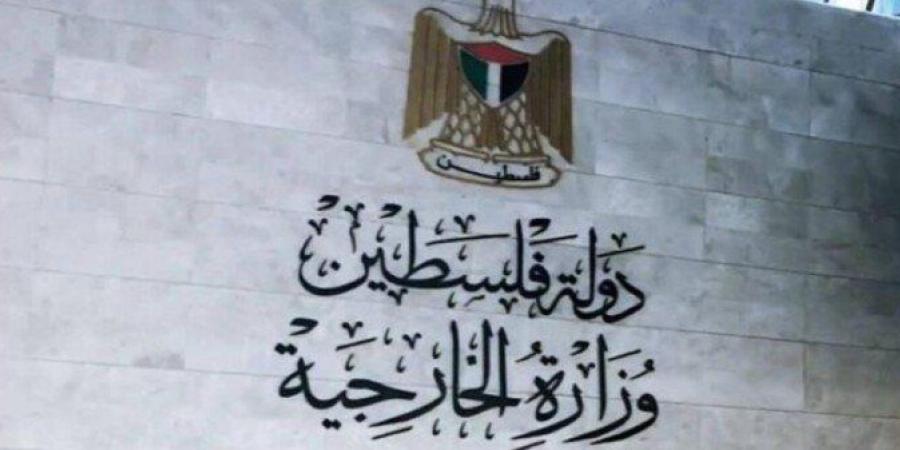 فلسطين
دَولة فَلِسَطِيْن
وُزَارَةُ الخَارِجَيِة